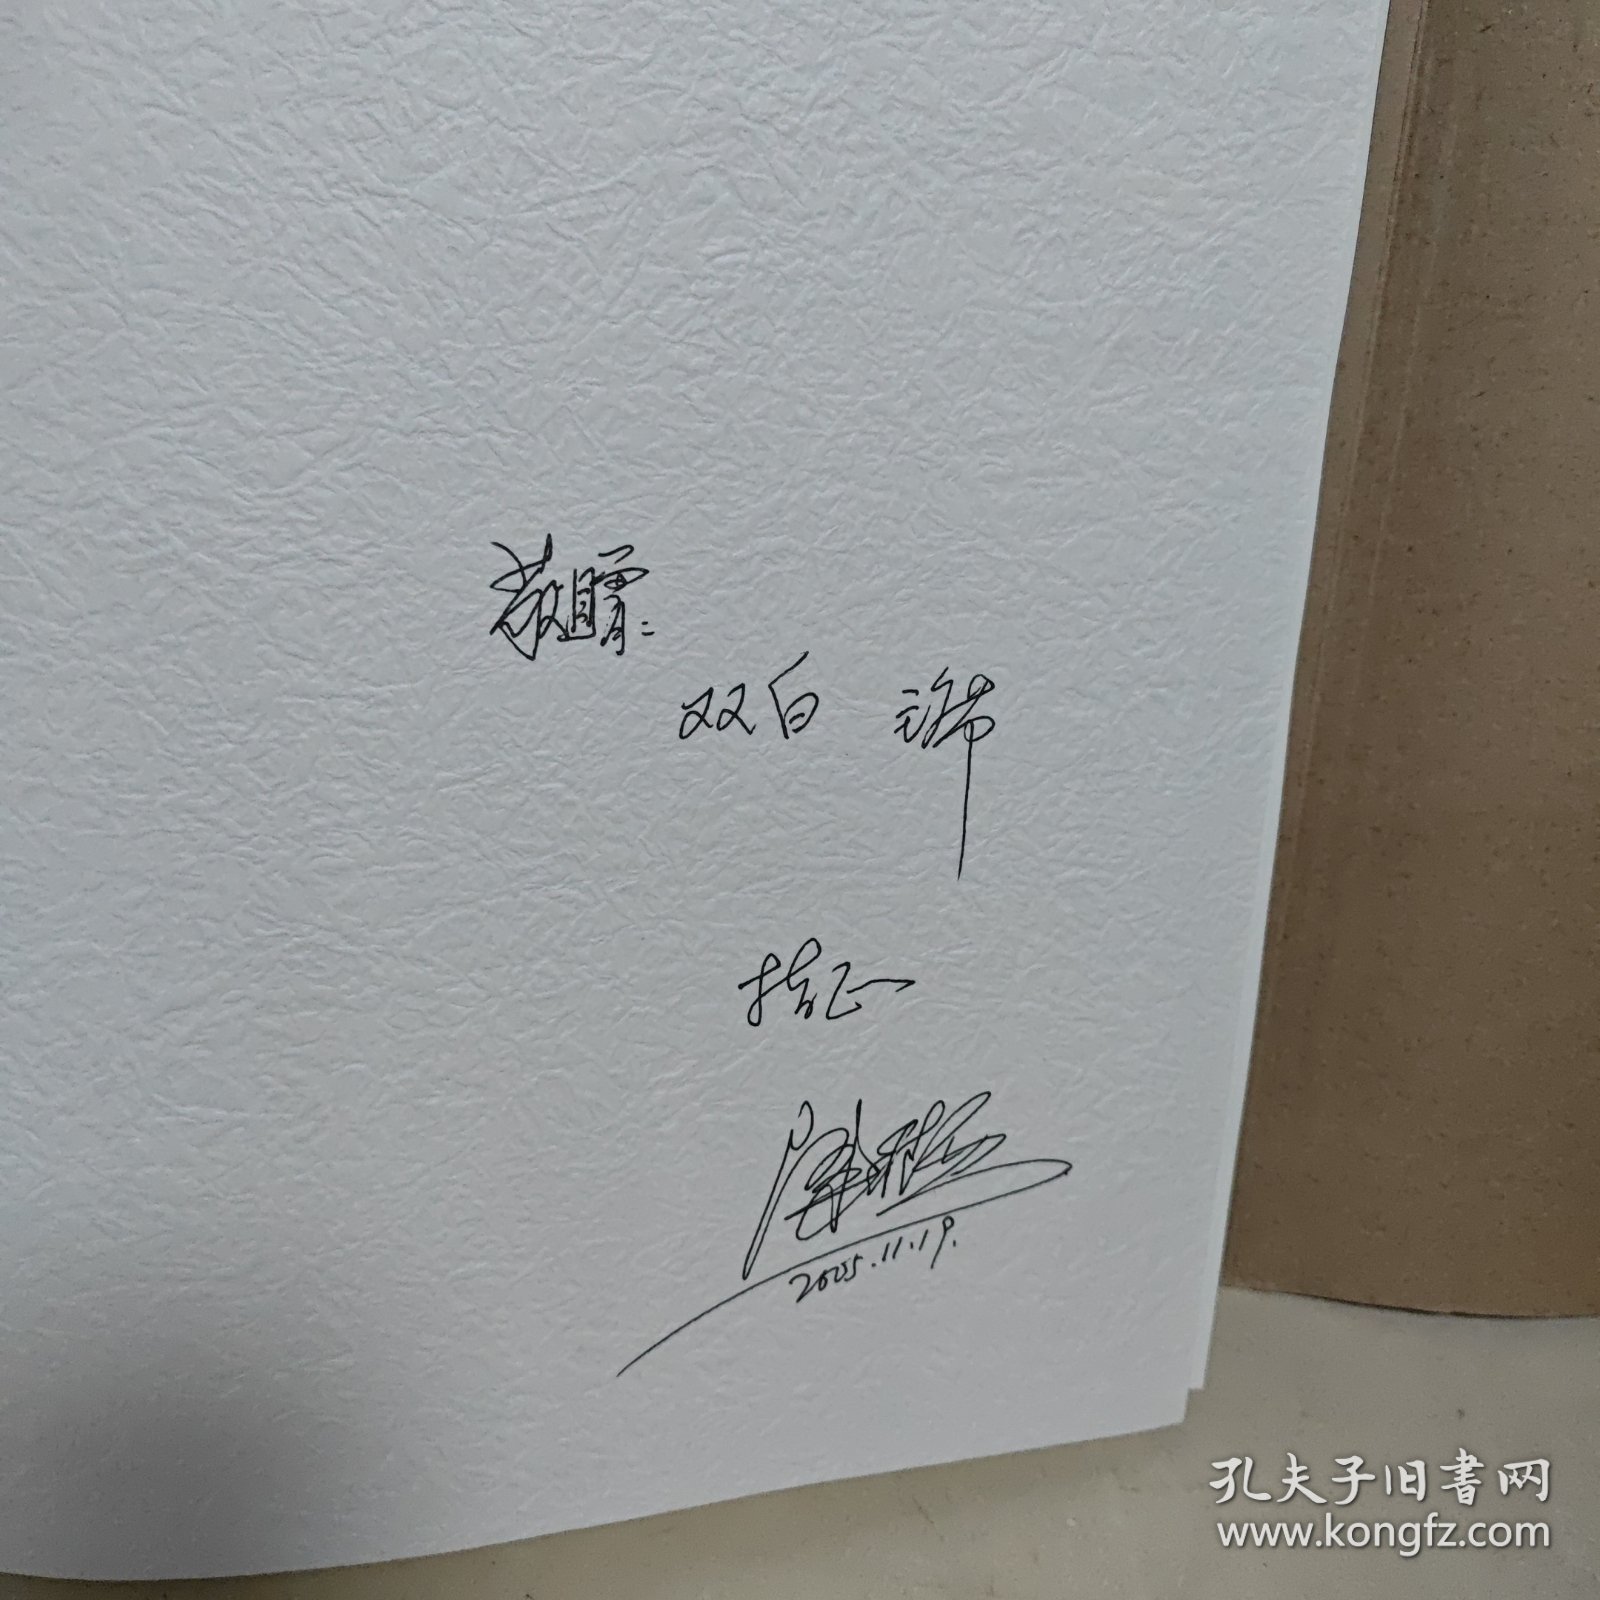 敬赠:
双白 
指正
2005.11.19.
孔夫子旧书网
www.kongfz.com